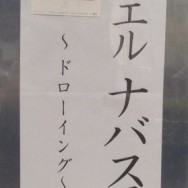 エル ナバス
～ドローイング～